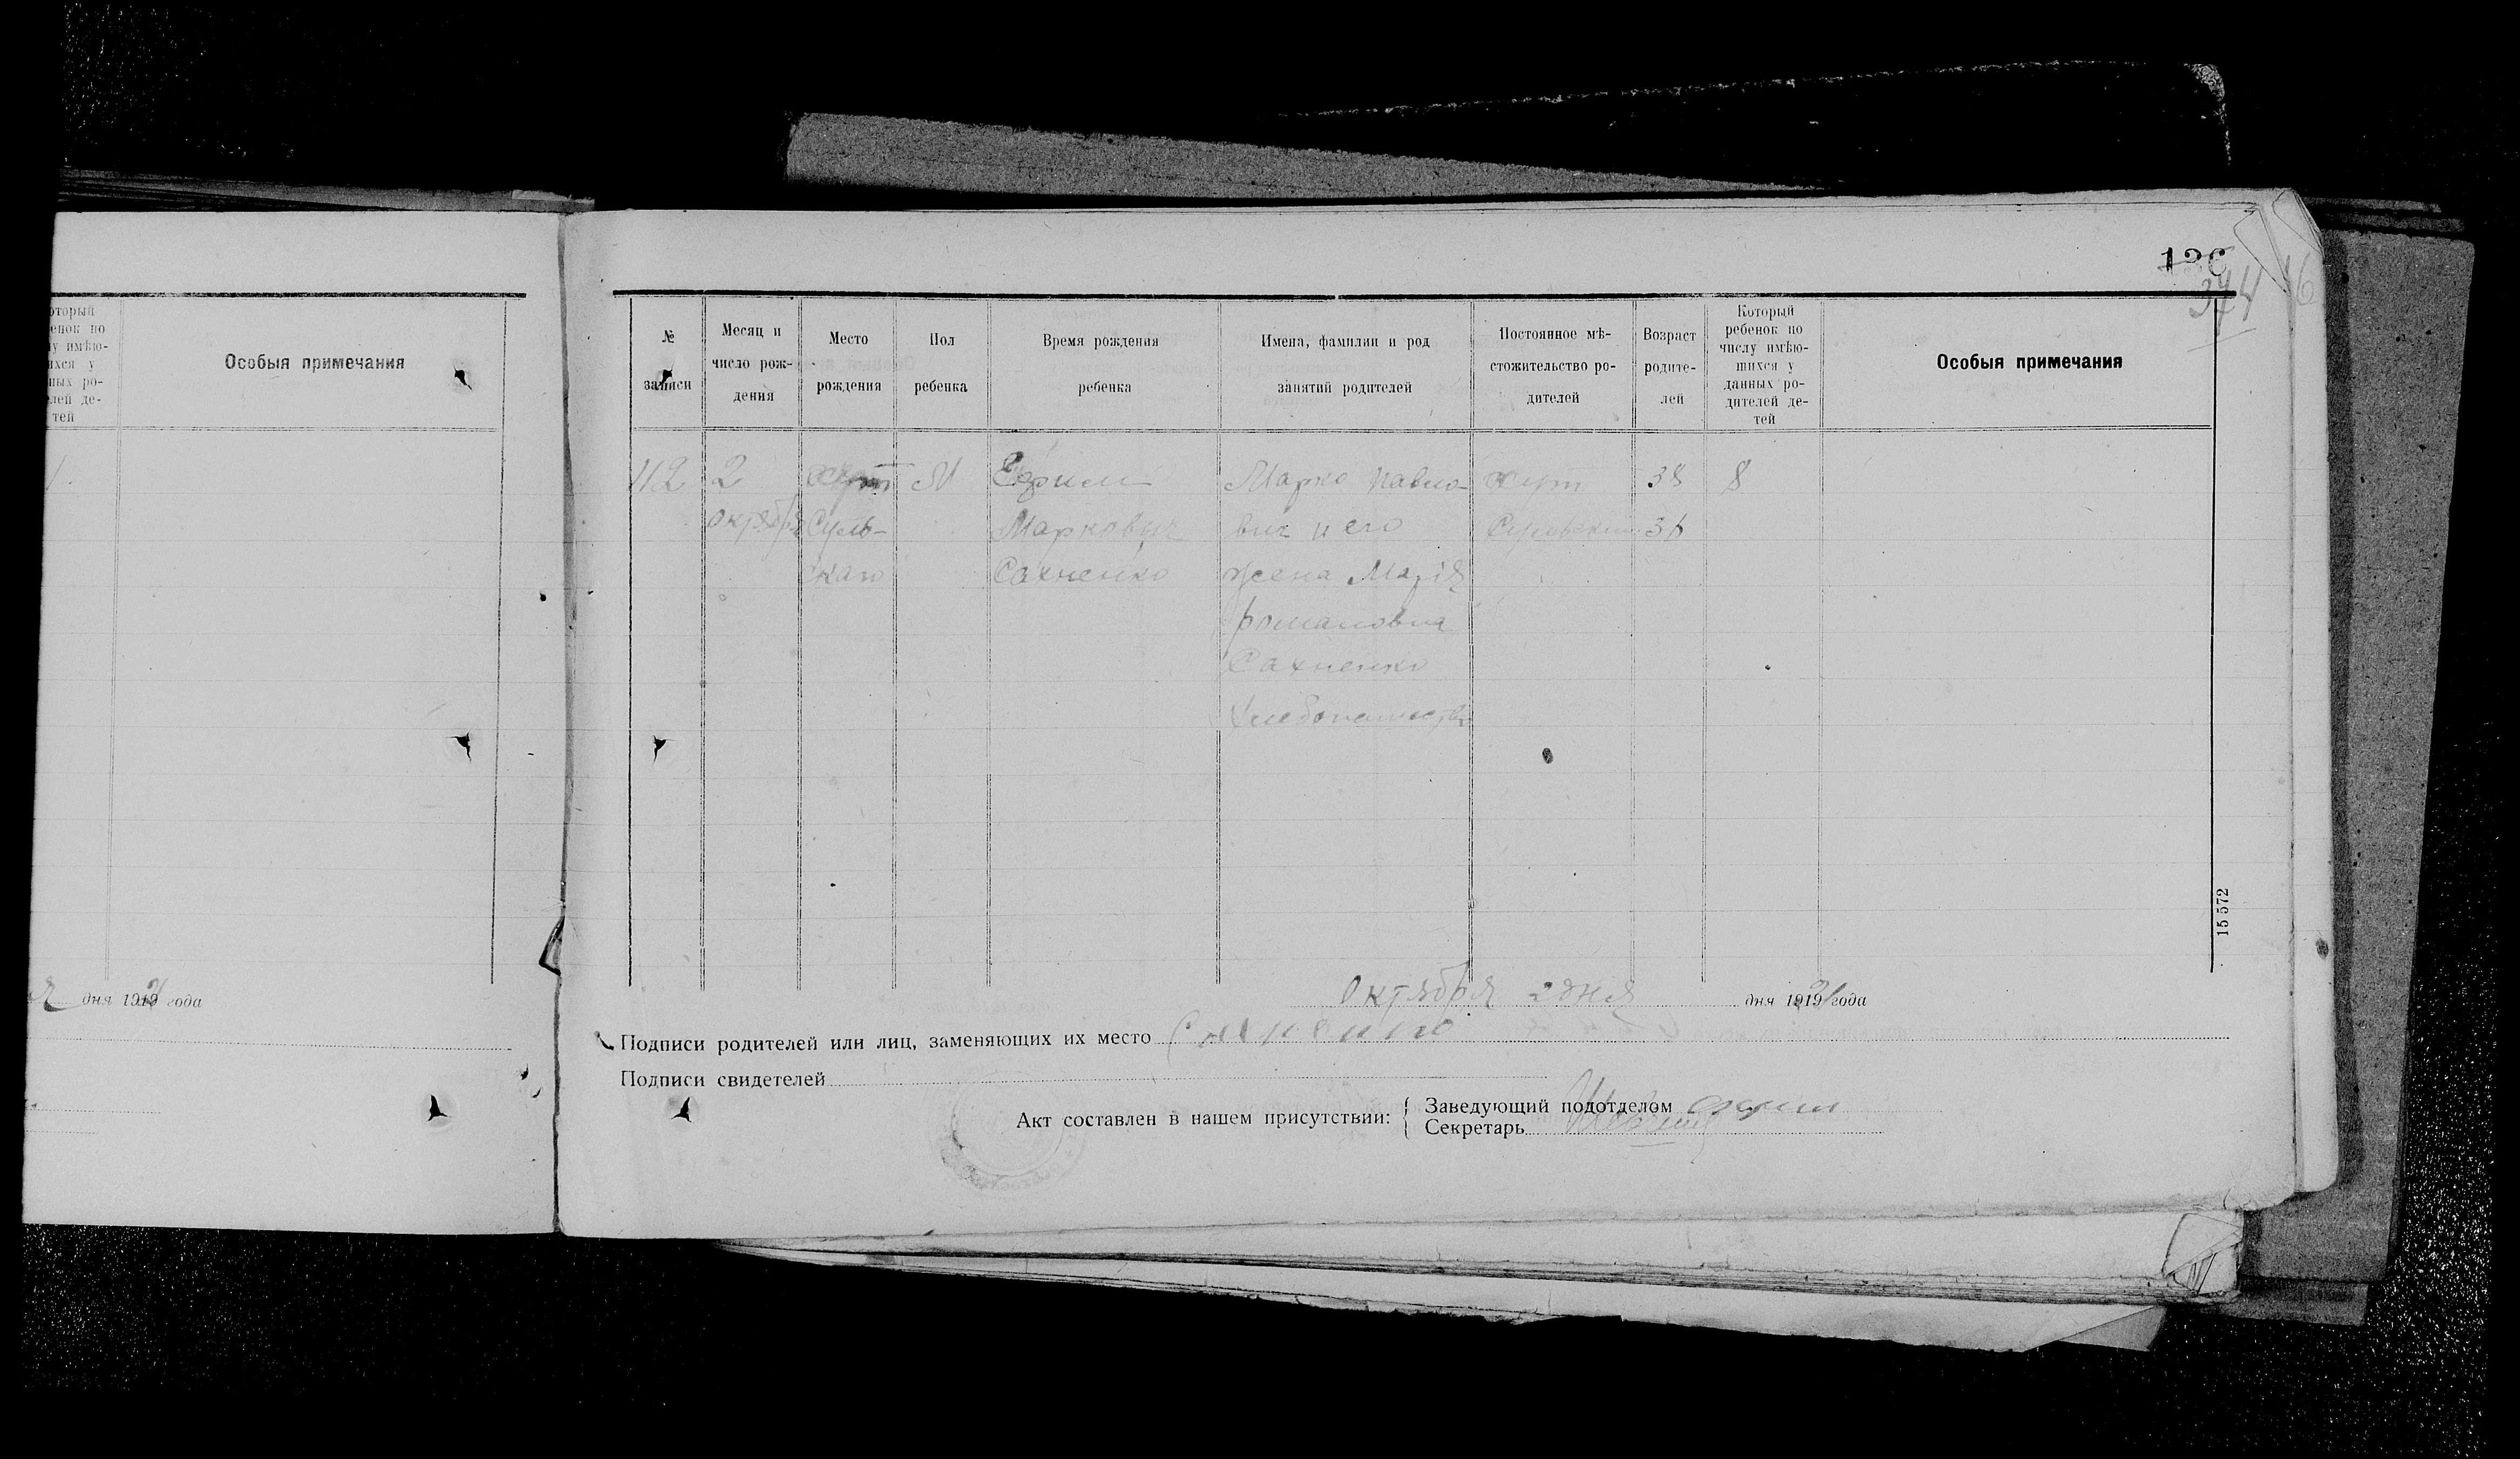 оторый
енок по
у имѣю-
ихся у
ных ро-
лей де-
тей
Особыя примечания
дня 1919 года
126
344
16
№
записи
Месяц и
число рож-
дения
Место
рождения
Пол
ребенка
Время рождения
ребенка
Имена, фамилии и род
занятий родителей
Постоянное мѣ-
стожительство ро-
дителей
Возраст
родите-
лей
Который
ребенок по
числу имѣю-
шихся у
данных ро-
дителей де-
тей
Особыя примечания
112
2
октября
хут
Суль-
скаго
М
Ефрем
Маркович
Сахненко
Марко Павло-
вич и его
жена Марія
Романовна
Сахненко
Хлебопашество
хут
38
36
8
15 572
Октября 2 дня дня 1921 года
Подписи родителей или лиц, заменяющих их место Сахненко
Подписи свидетелей
Акт составлен в нашем присутствии:
Заведующий подотделом
Секретарь